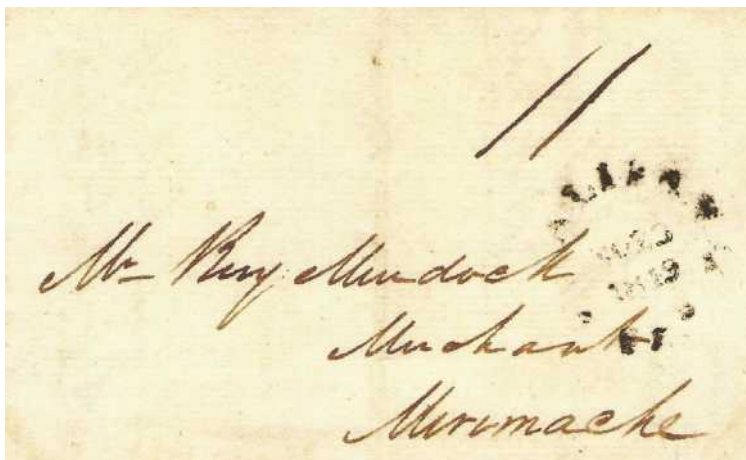 11
HALIFAX
1819
Mr Murdock
Merchant
Mirimache